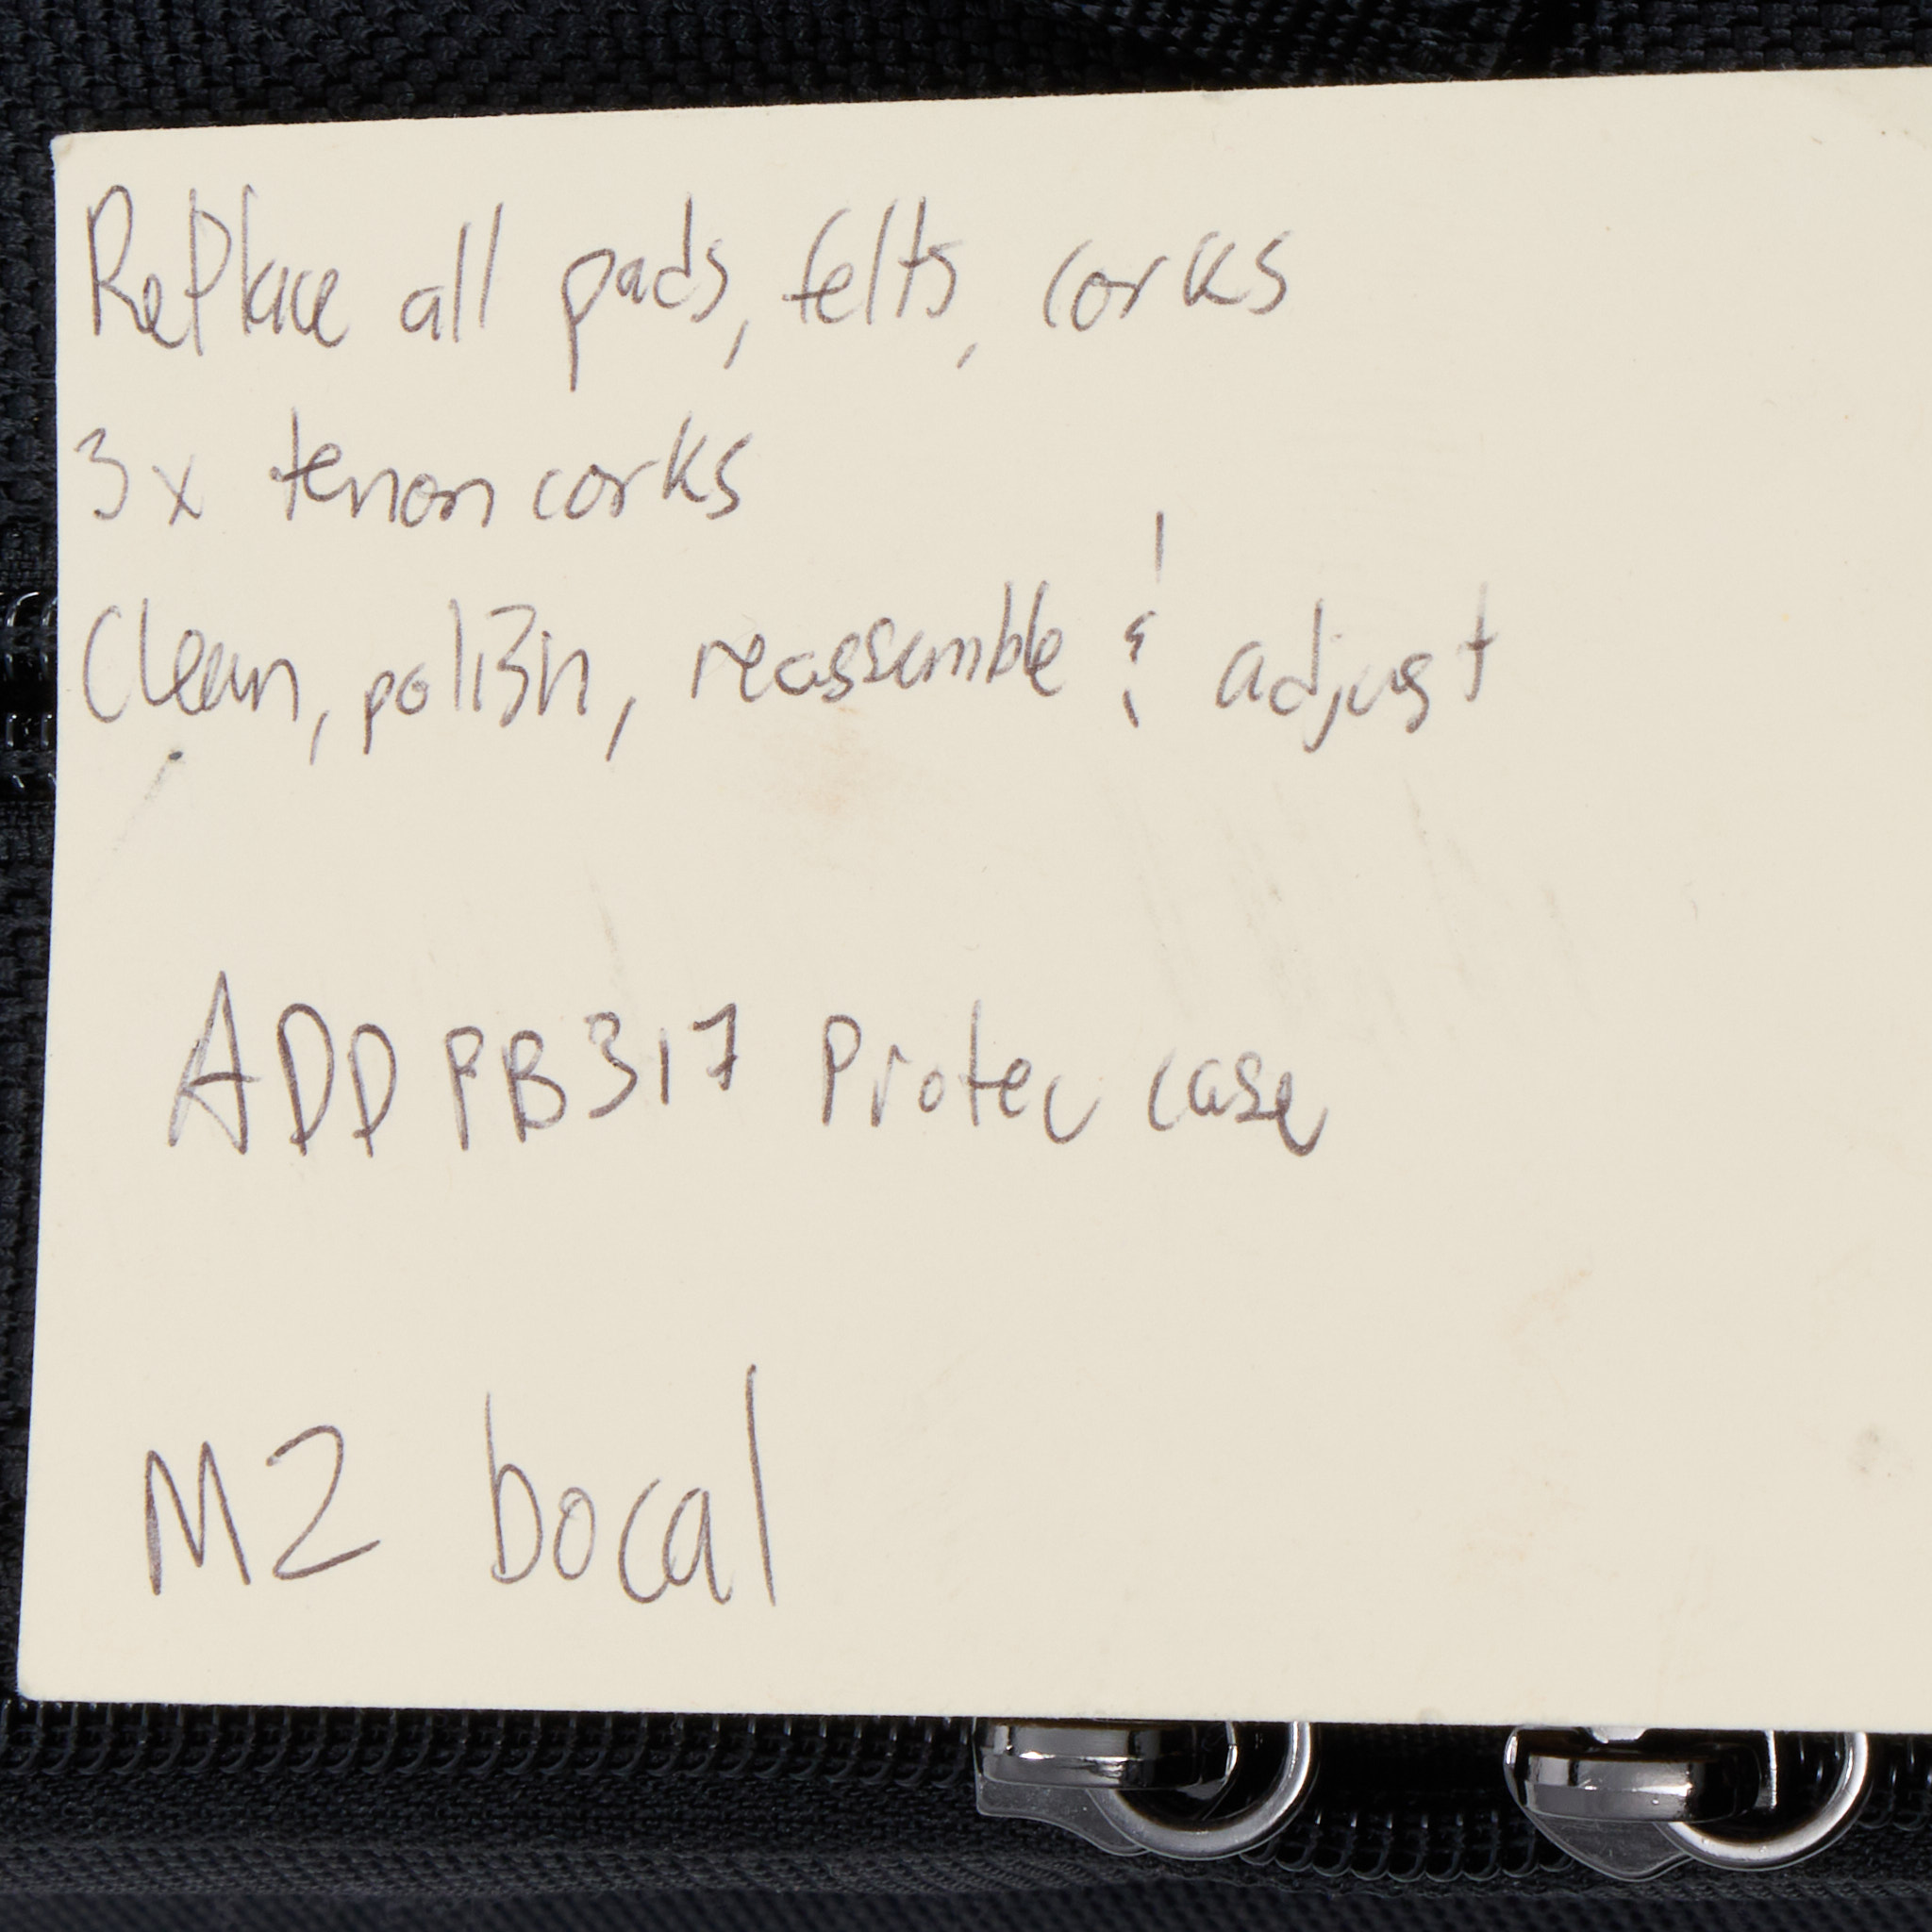 RePlace all pads, felts, corks
3x tenon corks
Clean, polish, reassemble & adjust
ADD PB317 Protec case
M2 bocal